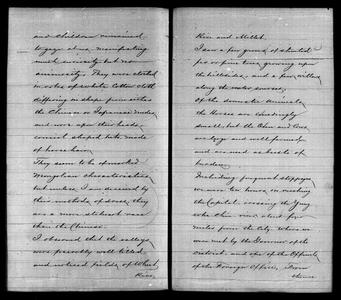 and children remained
to gaze at us, manifesting
much curiosity but no
animosity. They were clothed
in robes of white cotton cloth
differing in shape from either
the Chinese or Japanese modes,
and wore upon their heads
conical shaped hats made
of horse hair.
They seem to be of marked
Mongolian characteristics
but unless I am deceived by
their methods of dress, they
are a more stalwart race
than the Chinese.
I observed that the valleys
were passably well tilled
and noticed fields of Wheat
Rice
Rice and Millet.
I saw a few groves of stunted
pine trees growing upon
the hillsides, and a few willows
along the water courses.
Of the domestic animals
the Horses are exceedingly
small, but the Oxen and Cows
are large and well formed,
and are used as beasts of
burden.
Including frequent stoppages
we were ten hours in reaching
the Capital, crossing the
river about four
miles from the City where we
were met by the Governor of the
District and one of the Officers
of the Foreign Office,